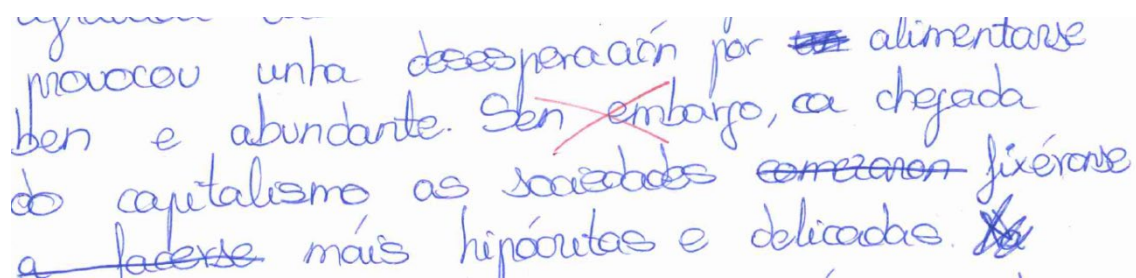 provocou unha desesperación por alimentarse
ben e abundante. Sen embargo, ca chegada
do capitalismo as sociedades comezaron fixéronse
a facerse máis hipócritas e delicadas.